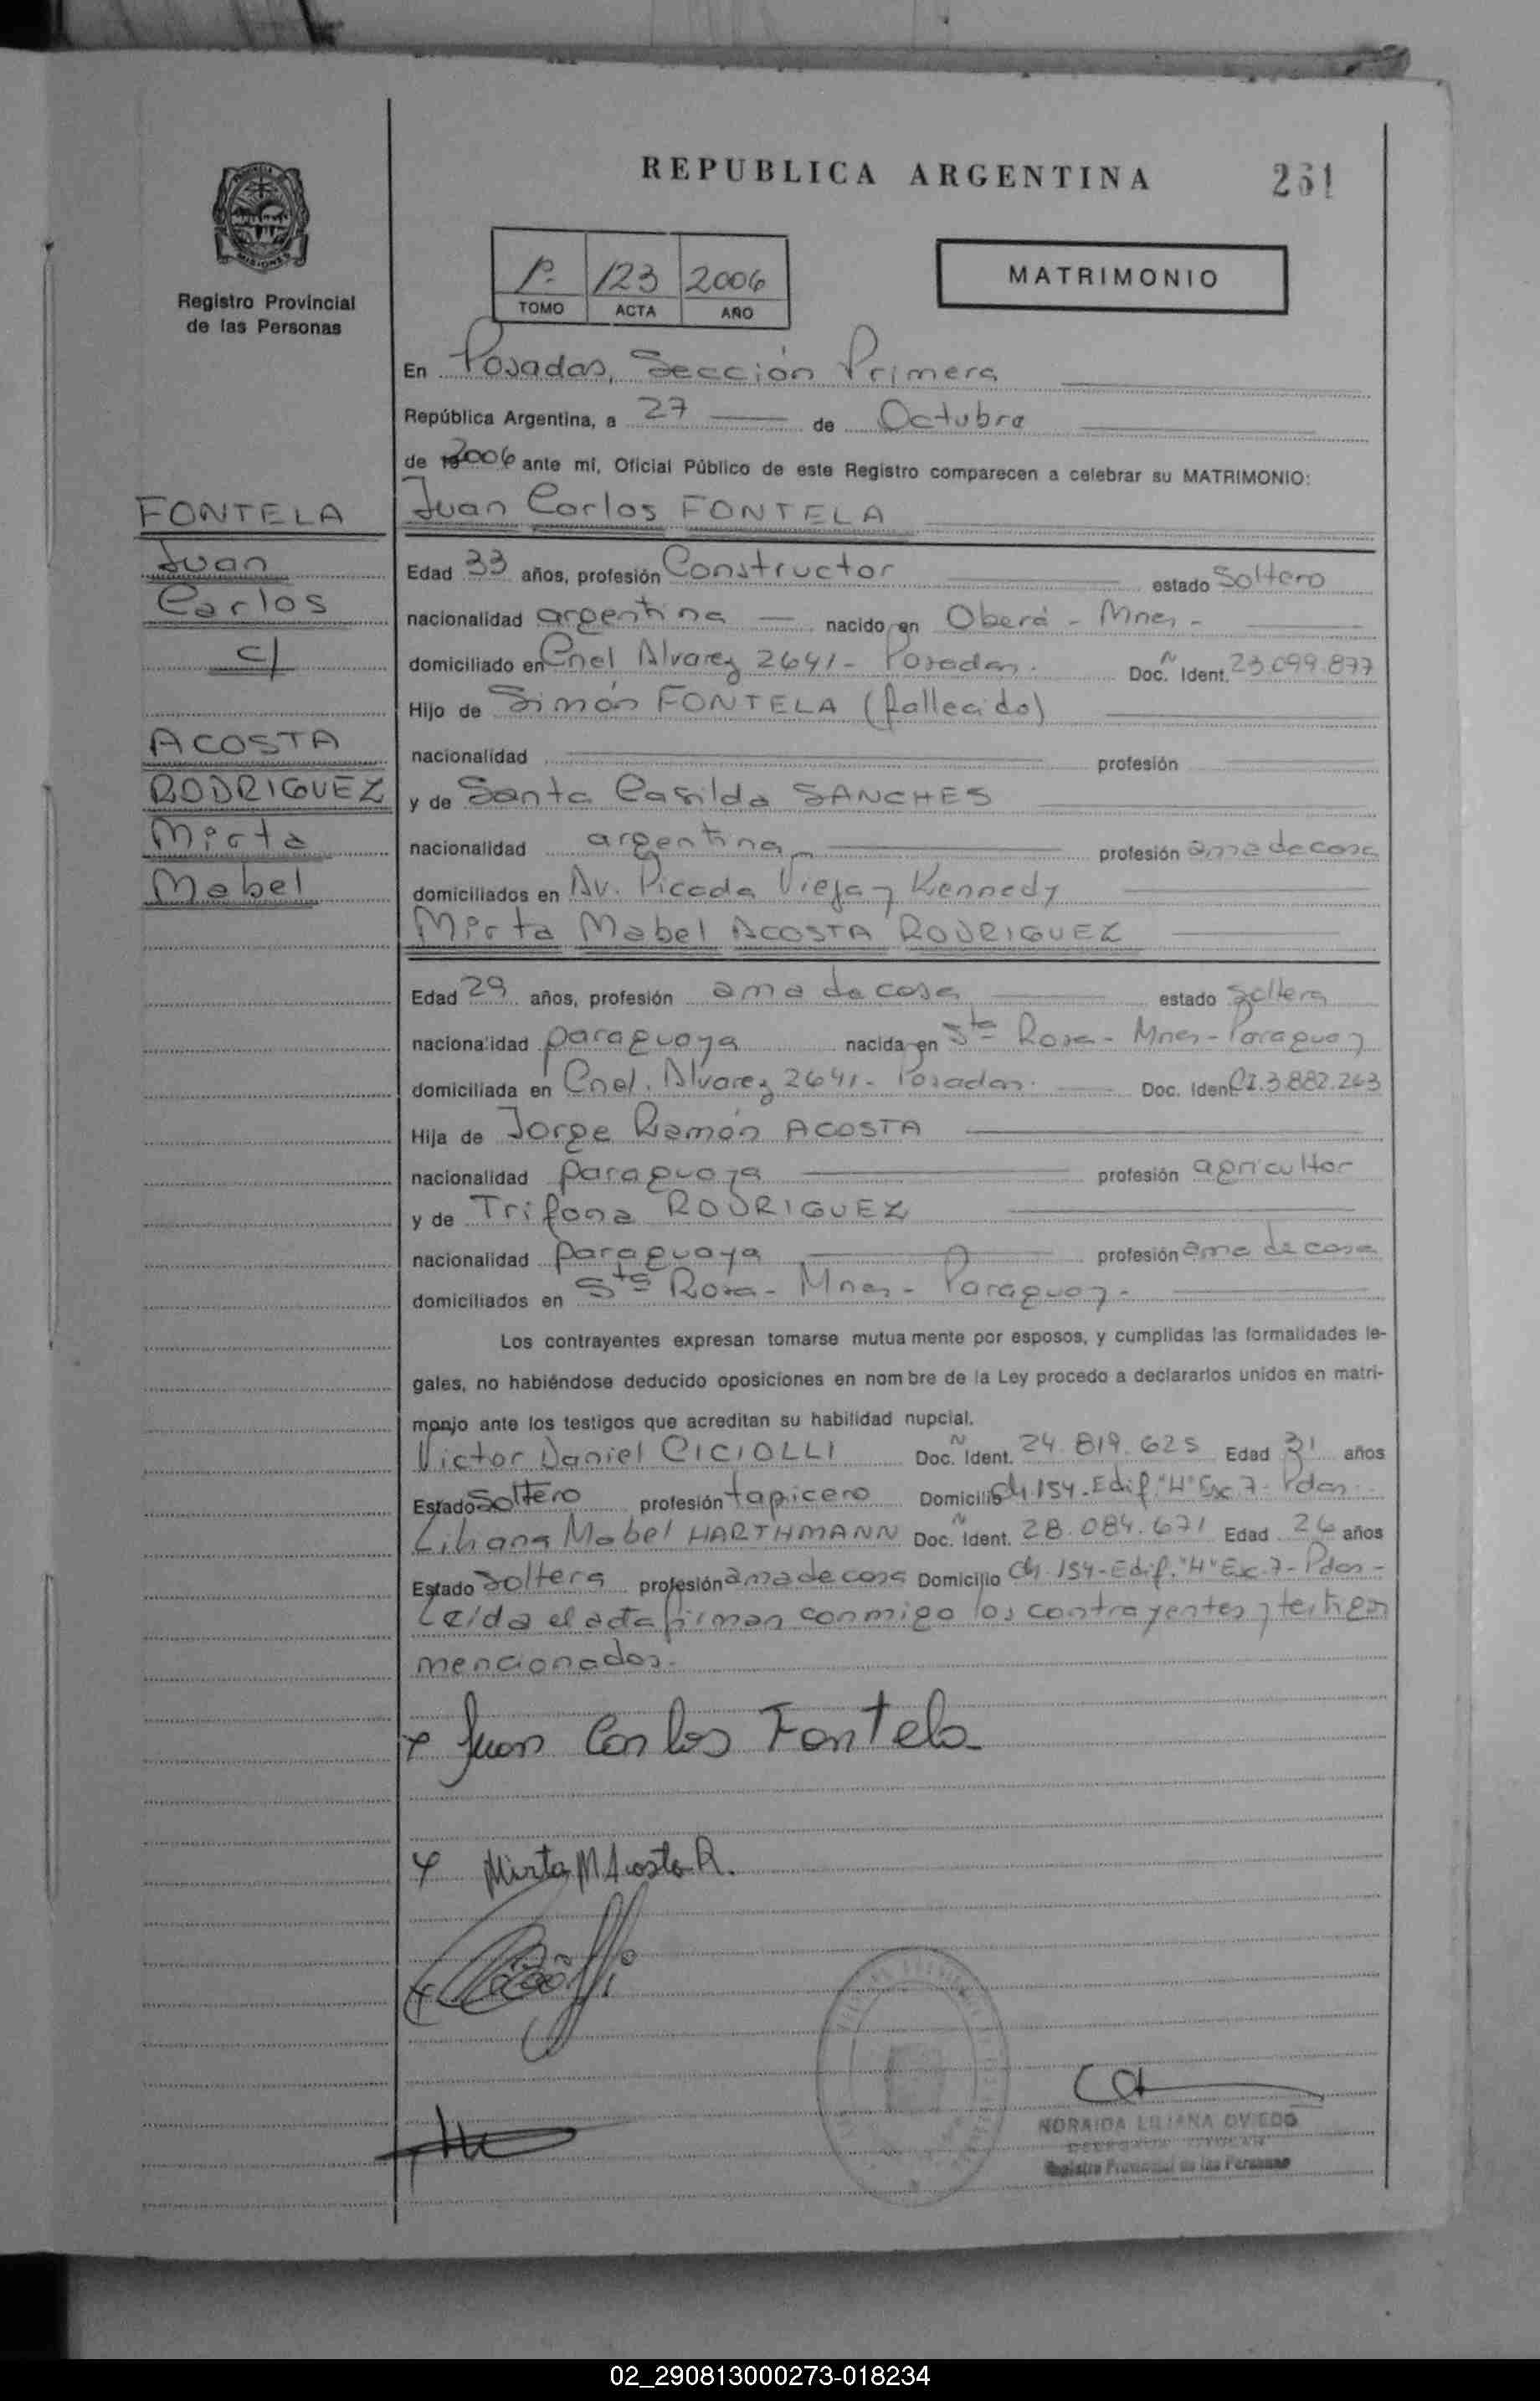 REPUBLICA ARGENTINA
261
PROVINCIA DE
MISIONES
Registro Provincial
de las Personas
1º 123 2006
TOMO ACTA AÑO
MATRIMONIO
En Posadas, Sección Primera
República Argentina, a 27 de Octubre
de 2006 ante mí, Oficial Público de este Registro comparecen a celebrar su MATRIMONIO:
FONTELA
Juan
Carlos
c/
ACOSTA
RODRIGUEZ
Mirta
Mabel
Juan Carlos FONTELA
Edad 33 años, profesión Constructor estado Soltero
nacionalidad argentina nacido en Oberá - Mnes -
domiciliado en Cnel Alvarez 2641 - Posadas. Doc. N Ident. 23.099.877
Hijo de Simón FONTELA (fallecido)
nacionalidad profesión
y de Santa Casilda SANCHES
nacionalidad argentina profesión ama de casa
domiciliados en Av. Picada Vieja y Kennedy
Mirta Mabel ACOSTA RODRIGUEZ
Edad 29 años, profesión ama de casa estado soltera
nacionalidad paraguaya nacida en Sta Rosa - Mnes - Paraguay
domiciliada en Cnel. Alvarez 2641 - Posadas. Doc. Ident. CI. 3.882.263
Hija de Jorge Ramón ACOSTA
nacionalidad paraguaya profesión agricultor
y de Trifona RODRIGUEZ
nacionalidad paraguaya profesión ama de casa
domiciliados en Sta Rosa - Mnes - Paraguay -
Los contrayentes expresan tomarse mutua mente por esposos, y cumplidas las formalidades le-
gales, no habiéndose deducido oposiciones en nom bre de la Ley procedo a declararlos unidos en matri-
monio ante los testigos que acreditan su habilidad nupcial.
Victor Daniel CICIOLLI Doc. N Ident. 24.819.625 Edad 31 años
Estado Soltero profesión tapicero Domicilio Ch. 154 - Edif. "H" Esc. 7 - Pdas -
Liliana Mabel HARTHMANN Doc. N Ident. 28.084.671 Edad 26 años
Estado Soltera profesión ama de casa Domicilio Ch. 154 - Edif. "H" Esc. 7 - Pdas -
Leída el acta firman conmigo los contrayentes y testigos
mencionados.
Juan Carlos Fontela
Mirta M Acosta R.
NORAIDA LILIANA OVIEDO
Registro Provincial de las Personas
02_290813000273-018234